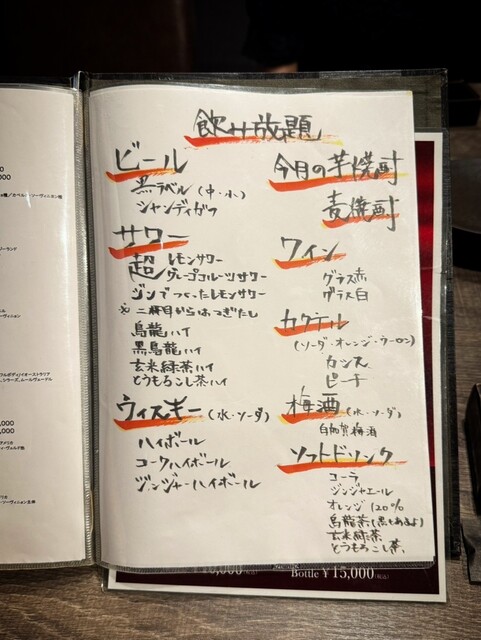 飲み放題
ビール
黒ラベル (中・小)
シャンディガフ
サワー
超 レモンサワー
グレープフルーツサワー
ジンでつくったレモンサワー
※ 二杯目からはつぎたし
烏龍ハイ
黒烏龍ハイ
玄米緑茶ハイ
とうもろこし茶ハイ
ウィスキー (水・ソーダ)
ハイボール
コークハイボール
ジンジャーハイボール
今月の芋焼酎
麦焼酎
ワイン
グラス赤
グラス白
カクテル
(ソーダ・オレンジ・ウーロン)
カシス
ピーチ
梅酒 (水・ソーダ)
白加賀梅酒
ソフトドリンク
コーラ
ジンジャエール
オレンジ 120%
烏龍茶 (黒もあるよ)
玄米緑茶
とうもろこし茶
Bottle ¥15,000 (税込)